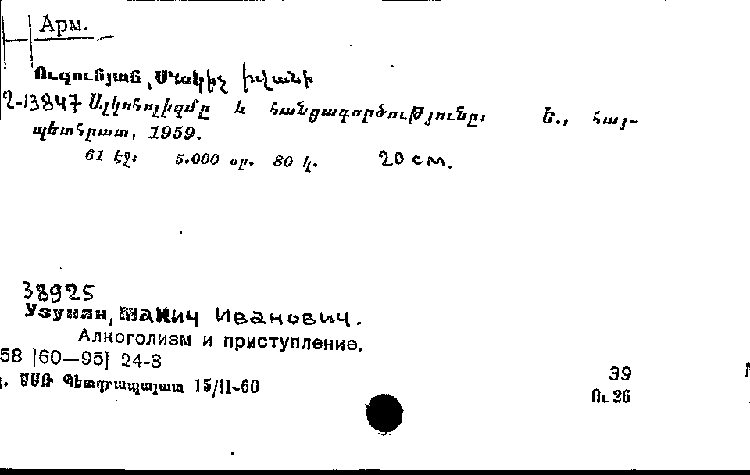 Арм.
Ուզունյան, Մակիչ Իվանի
2-13847 Ալկոհոլիզմը և հանցագործությունը: Ե., Հայ-
պետհրատ, 1959.
61 էջ: 5.000 օր. 80 կ. 20 см.
38925
Узунян, Макич Иванович.
Алкоголизм и приступление.
58 [60—95] 24-3
ՍՍՌ Գետգրապալատ 15/II-60
39
Ու 26